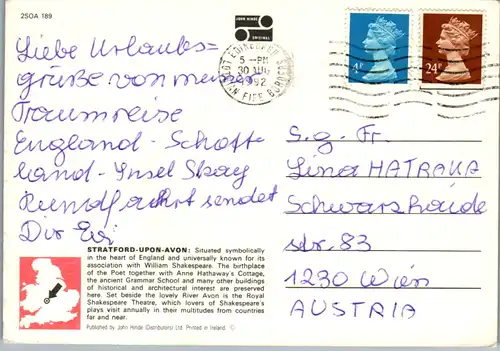 2SOA 189
JOHN HINDE
ORIGINAL
EDINBURGH
5 - PM
30 AUG
1992
FIFE
4P
24P
Liebe Urlaubs=
grüße von meiner
Traumreise
England - Schott-
land - Insel Skay
Rundfahrt sendet
Dir Evi
S.g. Fr.
Lina HATRAKA
Schwarzhaide
str. 83
1230 Wien
AUSTRIA
STRATFORD-UPON-AVON: Situated symbolically
in the heart of England and universally known for its
association with William Shakespeare. The birthplace
of the Poet together with Anne Hathaway's Cottage,
the ancient Grammar School and many other buildings
of historical and architectural interest are preserved
here. Set beside the lovely River Avon is the Royal
Shakespeare Theatre, which lovers of Shakespeare's
plays visit annually in their multitudes from countries
far and near.
Published by John Hinde (Distributors) Ltd. Printed in Ireland. ©